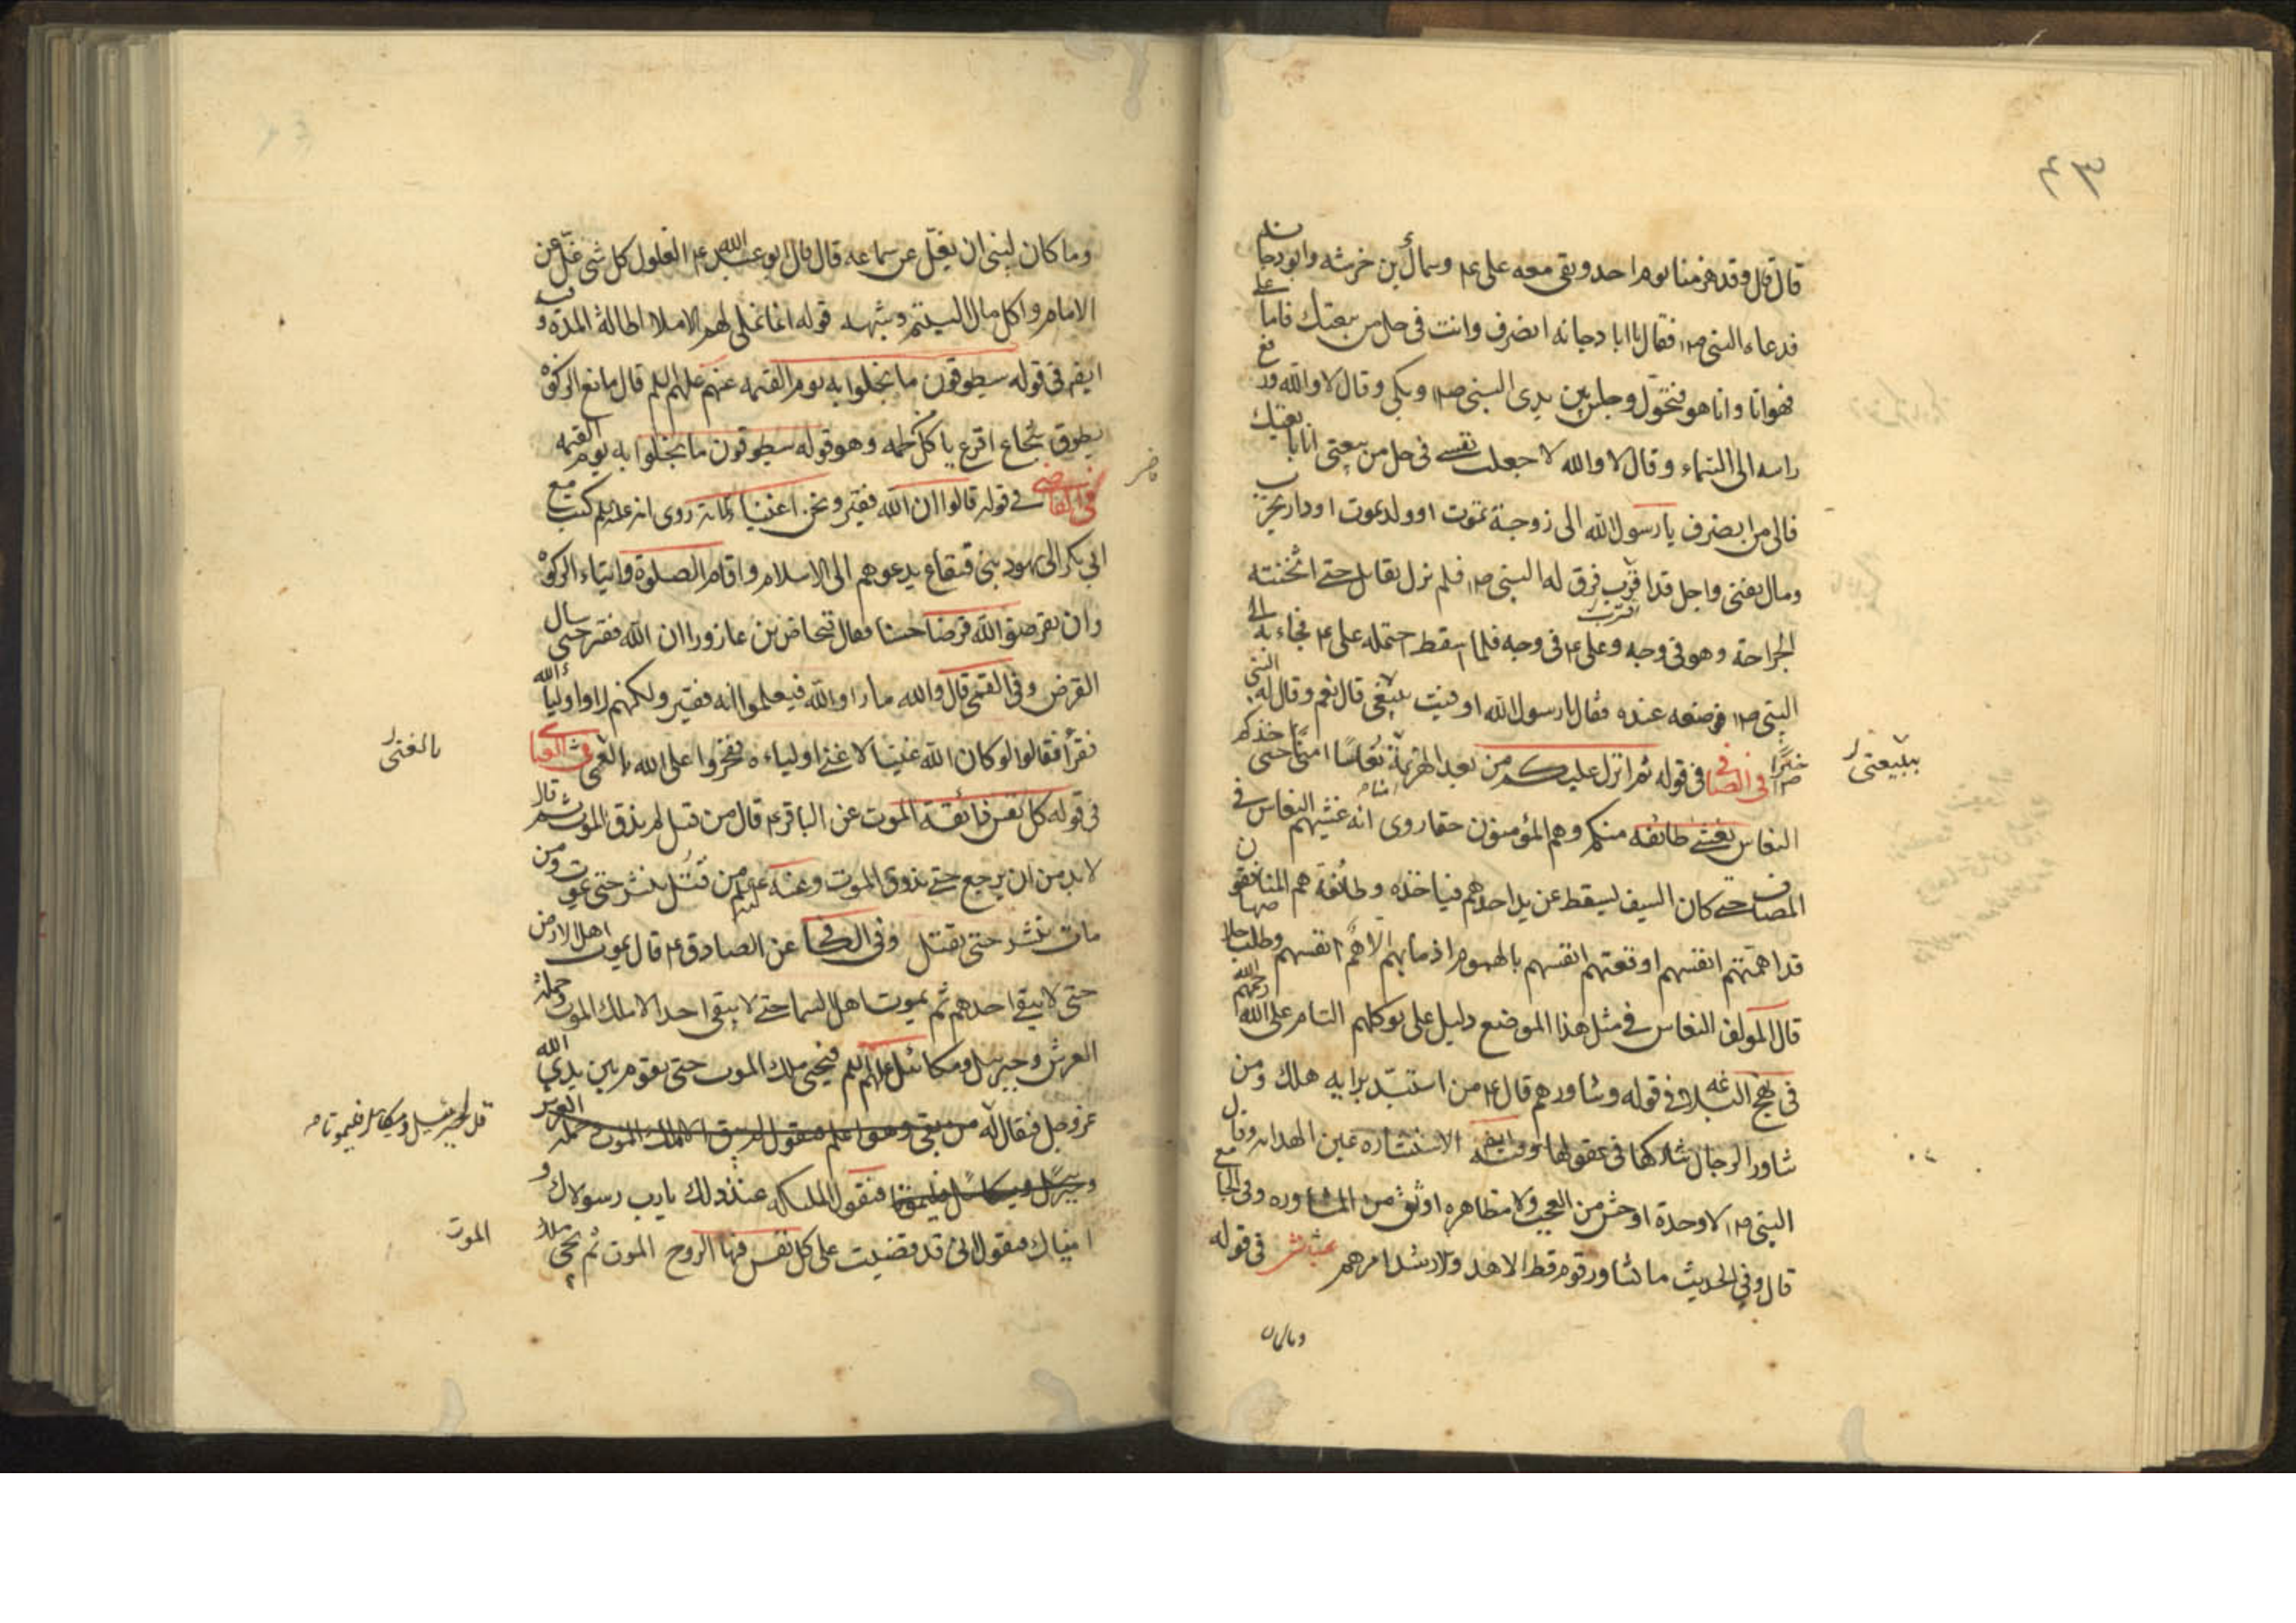 قال قال وقد هزمنا يوم احد وبقى معه على ع وسماك بن خرشه وابو دجانه
فدعاه النبى ص فقال يا ابا دجانه انصرف وانت فى حل من بيعتك فاما على
فهو انا وانا هو فتحول وجلس بين يدى النبى ص وبكى وقال لا والله ورفع
راسه الى السماء وقال لا والله لا جعلت نفسى فى حل من بيعتى انا بايعتك
فالى من انصرف يا رسول الله الى زوجة تموت او ولد يموت او دار تخرب
ومال يفنى واجل قد اقترب فرق له النبى ص فلم نزل يقاتل حتى اثخنته
الجراحة وهو فى وجه وعلى ع فى وجه فلما اسقط احتمله على ع فجاء به الى
النبى ص فوضعه عنده فقال يا رسول الله اوفيت ببيعتى قال نعم وقال له النبى
خيرا فى الصافى فى قوله ثم انزل عليكم من بعد الغم امنة نعاسا
النعاس يغشى طائفه منكم وهم المؤمنون حقا روى انه غشيهم النعاس فى
المصاف حتى كان السيف ليسقط عن يد احدهم فياخذه وطائفة هم المنافقون
قد اهمتهم انفسهم اوقعتهم انفسهم بالهموم اذ ما بهم الا هم انفسهم وطلب خلاصها
قال المولف النعاس فى مثل هذا الموضع دليل على توكلهم التام على الله رحمهم الله
فى نهج البلاغه فى قوله وشاورهم قال ع من استبد برايه هلك ومن
شاور الرجال شاركها فى عقولها وفيه ايضا الاستشاره عين الهدايه وقال
النبى ص لا وحدة اوحش من العجب ولا مظاهره اوثق من المشاوره وفى الجامع
قال وفى الحديث ما تشاور قوم قط الا هدوا لارشد امرهم عياشى فى قوله
وما كان
وما كان لنبى ان يغل عن سماعه قال قال ابو عبد الله ع الغلول كل شى غل عن
الامام واكل مال اليتيم وشبهه قوله انما نملى لهم الاملا اطالة المدة وفيه
ايضا فى قوله سيطوقون ما بخلوا به يوم القيمه عنهم عليهم السلم قال مانع الزكوة
يطوق بشجاع اقرع ياكل لحمه وهو قوله سيطوقون ما بخلوا به يوم القيمه
فى الصافى فى قوله قالوا ان الله فقير ونحن اغنياء روى انه علیه السلم كتب مع
ابى بكر الى يهود بنى قينقاع يدعوهم الى الاسلام واقام الصلوة وايتاء الزكوة
وان يقرضوا الله قرضا حسنا فقال فنحاص بن عازورا ان الله فقير حتى سال
القرض وفى القمى قال والله ما راوا الله فيعلموا انه فقير ولكنهم راوا اولياء الله
فقرأ فقالوا لو كان الله غنيا لاغنى اولياءه ففخروا على الله بالغنى
بالغنى
فى قوله كل نفس ذائقة الموت عن الباقر ع قال من قتل لم يذق الموت ثم قال
لابد من ان يرجع حتى يذوق الموت وعنه ع من قتل ينشر حتى يموت ومن
مات ينشر حتى يقتل وفى الكافى عن الصادق ع قال يموت اهل الارض
حتى لا يبقى احد ثم يموت اهل السما حتى لا يبقى احد الا ملك الموت وحملة
العرش وجبرئيل وميكائيل عليهم السلم فيجئ ملك الموت حتى يقوم بين يدى الله
عز وجل فقال له من بقى وهو اعلم فيقول لم يبق الا ملك الموت وحملة العرش
وجبرئيل وميكائيل فليموتا فيقول الملئكه عند ذلك يا رب رسولاك و
قل لجبرئيل وميكائيل فليموتا
اميناك فيقول انى قد قضيت على كل نفس فيها الروح الموت ثم يجئ ملك
الموت